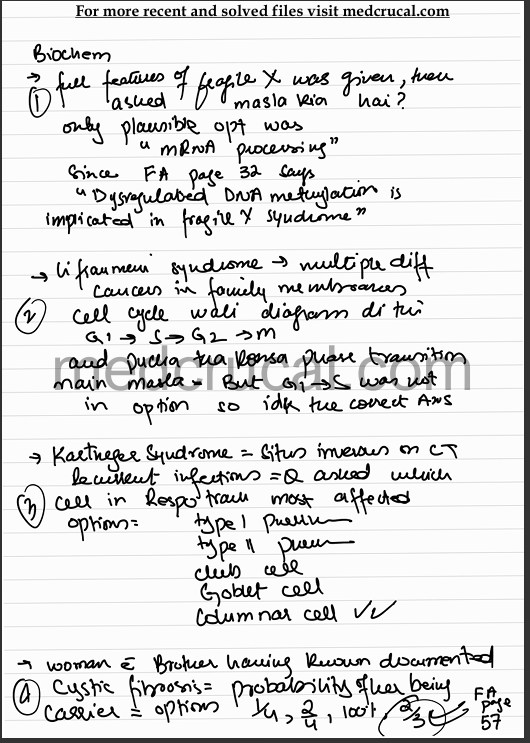 For more recent and solved files visit medcrucal.com
Biochem
→ full features of fragile X was given, then
① asked masla kia hai?
only plausible opt was
"mRNA processing"
Since FA page 32 says
"Dysregulated DNA methylation is
implicated in fragile X syndrome"
→ Li fraumeni syndrome → multiple diff
cancers in family
② cell cycle wali diagram di thi
G1 → S → G2 → M
and pucha tha konsa phase transition
main masla - But G1→S was not
in option so idk the correct Ans
medcrucal.com
→ Syndrome = Situs inversus on CT
Recurrent infections = Q asked which
③ cell in Resp tract most affected
options= type I
type II
club cell
Goblet cell
Columnar cell ✓✓
→ woman c̄ Brother having known documented
④ Cystic fibrosis = probability of her being
carrier = options 1/4, 2/4, 100%, 2/3 ✓
FA
page
57